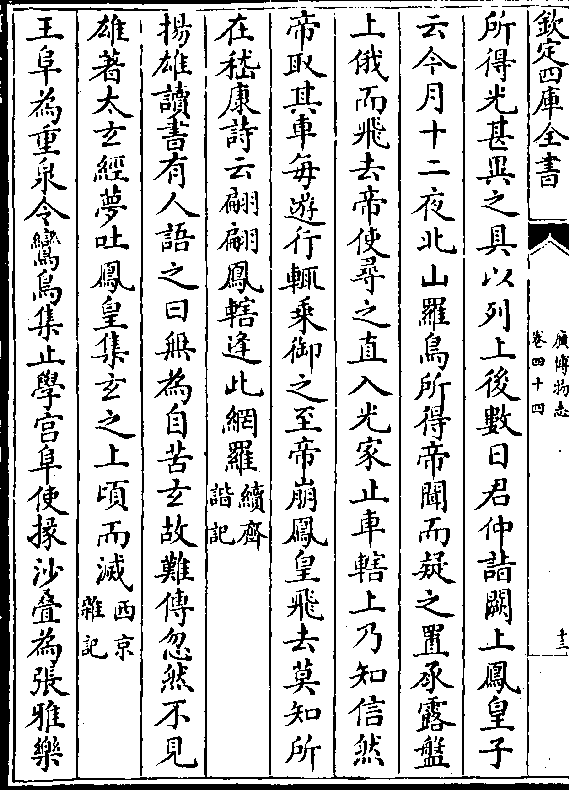 欽定四庫全書
廣博物志
卷四十四
十三
所得光甚異之具以列上後數日君仲詣闕上鳳皇子
云今月十二夜北山羅鳥所得帝聞而疑之置承露盤
上俄而飛去帝使尋之直入光家止車轄上乃知信然
帝取其車每遊行輒乘御之至帝崩鳳皇飛去莫知所
在嵇康詩云翩翩鳳轄逢此網羅續齊諧記
揚雄讀書有人語之曰無為自苦玄故難傳忽然不見
雄著太玄經夢吐鳳皇集玄之上頃而滅西京雜記
王阜為重泉令鸞鳥集止學宮阜使掾沙疊為張雅樂